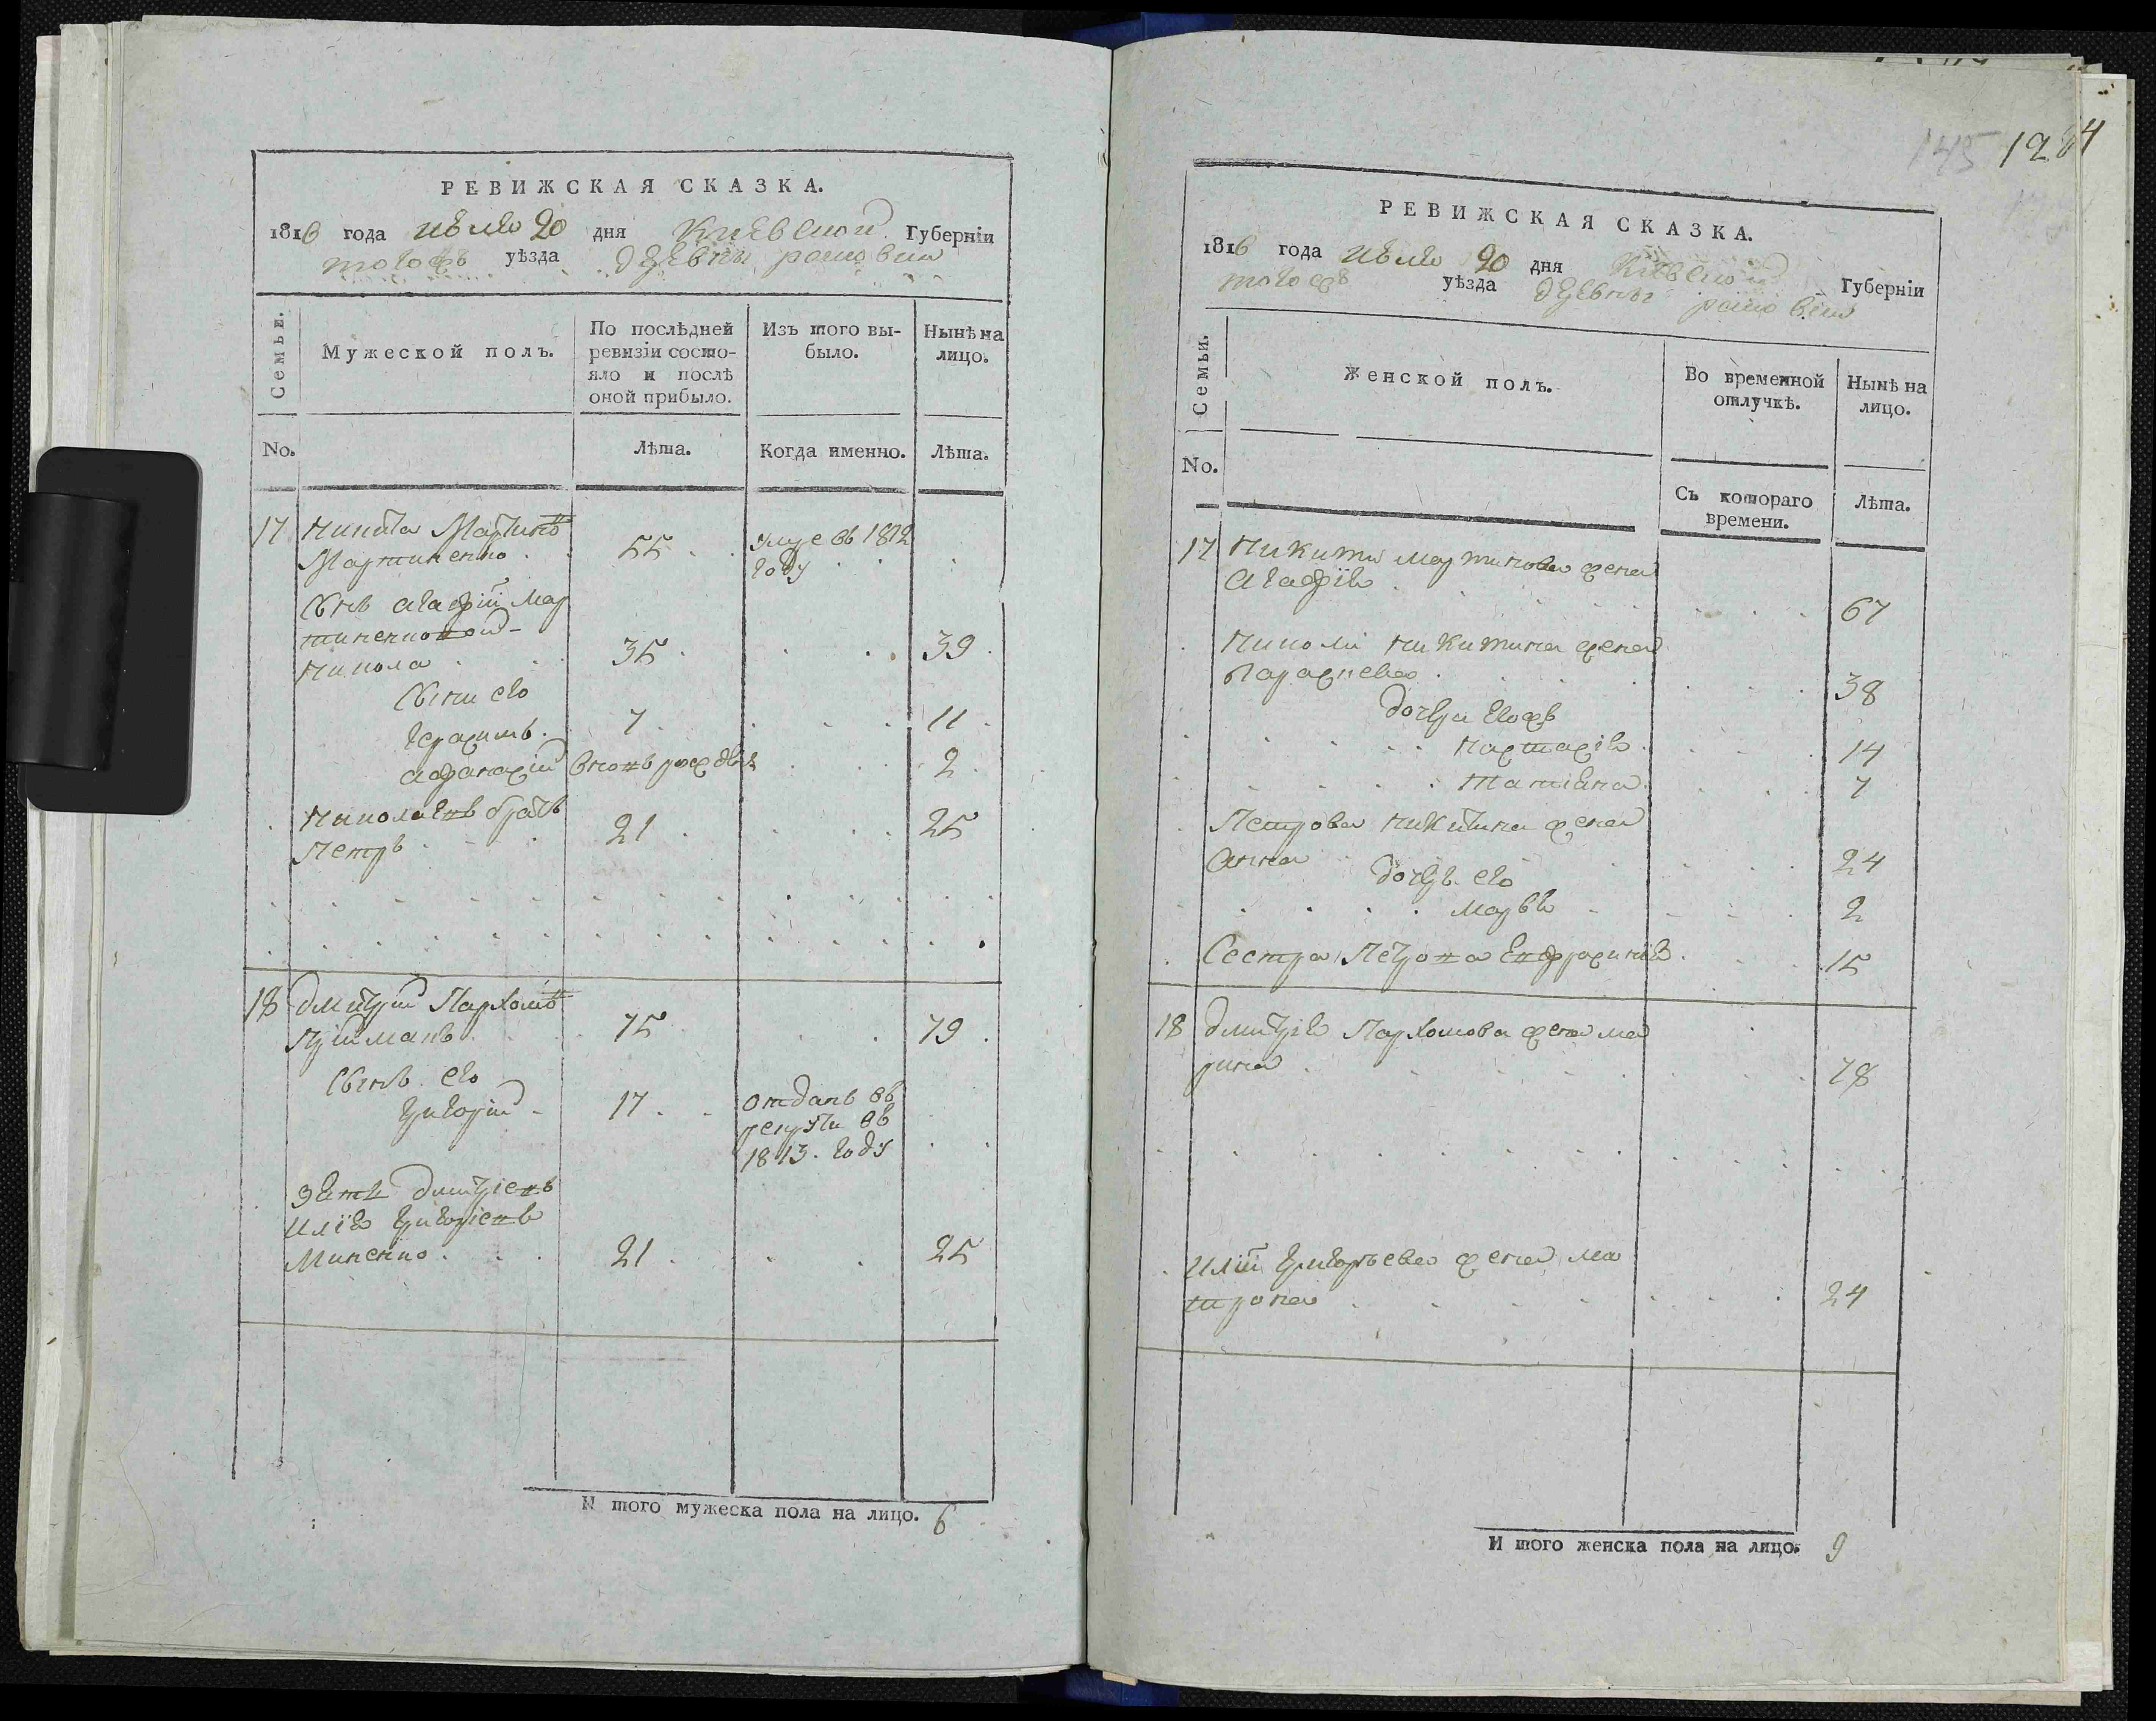 РЕВИЖСКАЯ СКАЗКА.
1816 года июля 20 дня Киевской Губерніи
тогожъ уѣзда деревни
Семьи.
Мужеской полъ.
По послѣдней ревизіи состо-
яло и послѣ
оной прибыло.
Изъ того вы-
было.
Нынѣ на
лицо.
No.
Лѣта.
Когда именно.
Лѣта.
17 Никита Мартиновъ
Мартиненко 55 умре въ 1812
году
Сынъ Агафіи Мар
тиненковой
Никола 35 39
Сыни его
Герасимъ 7 11
Афанасій вновь рожденъ 2
Николаевъ братъ
Петръ 21 25
18 Дмитрій Пархомовъ
Пріймакъ 75 79
Сынъ его
Григорій 17 отданъ въ
рекрути въ
1813 году
Зять Дмитріевъ
Илія Григоріевъ
Миненко 21 25
И того мужеска пола на лицо. 6
145 1224
РЕВИЖСКАЯ СКАЗКА.
1816 года июля 20 дня Киевской Губерніи
тогожъ уѣзда деревни
Семьи.
Женской полъ.
Во временной
отлучкѣ.
Нынѣ на
лицо.
No.
Съ котораго
времени.
Лѣта.
17 Никити Мартинова жена
Агафія 67
Николи Никитина жена
Параскева 38
дочери Егожъ
Настасія 14
Татіана 7
Петрова Никитина жена
Анна 24
дочерь его
Марья 2
Сестра Петрова Евфросинія 15
18 Дмитрія Пархомова жена Ма
рина 78
Иліи Григорьева жена Ма
трона 24
И того женска пола на лицо. 9